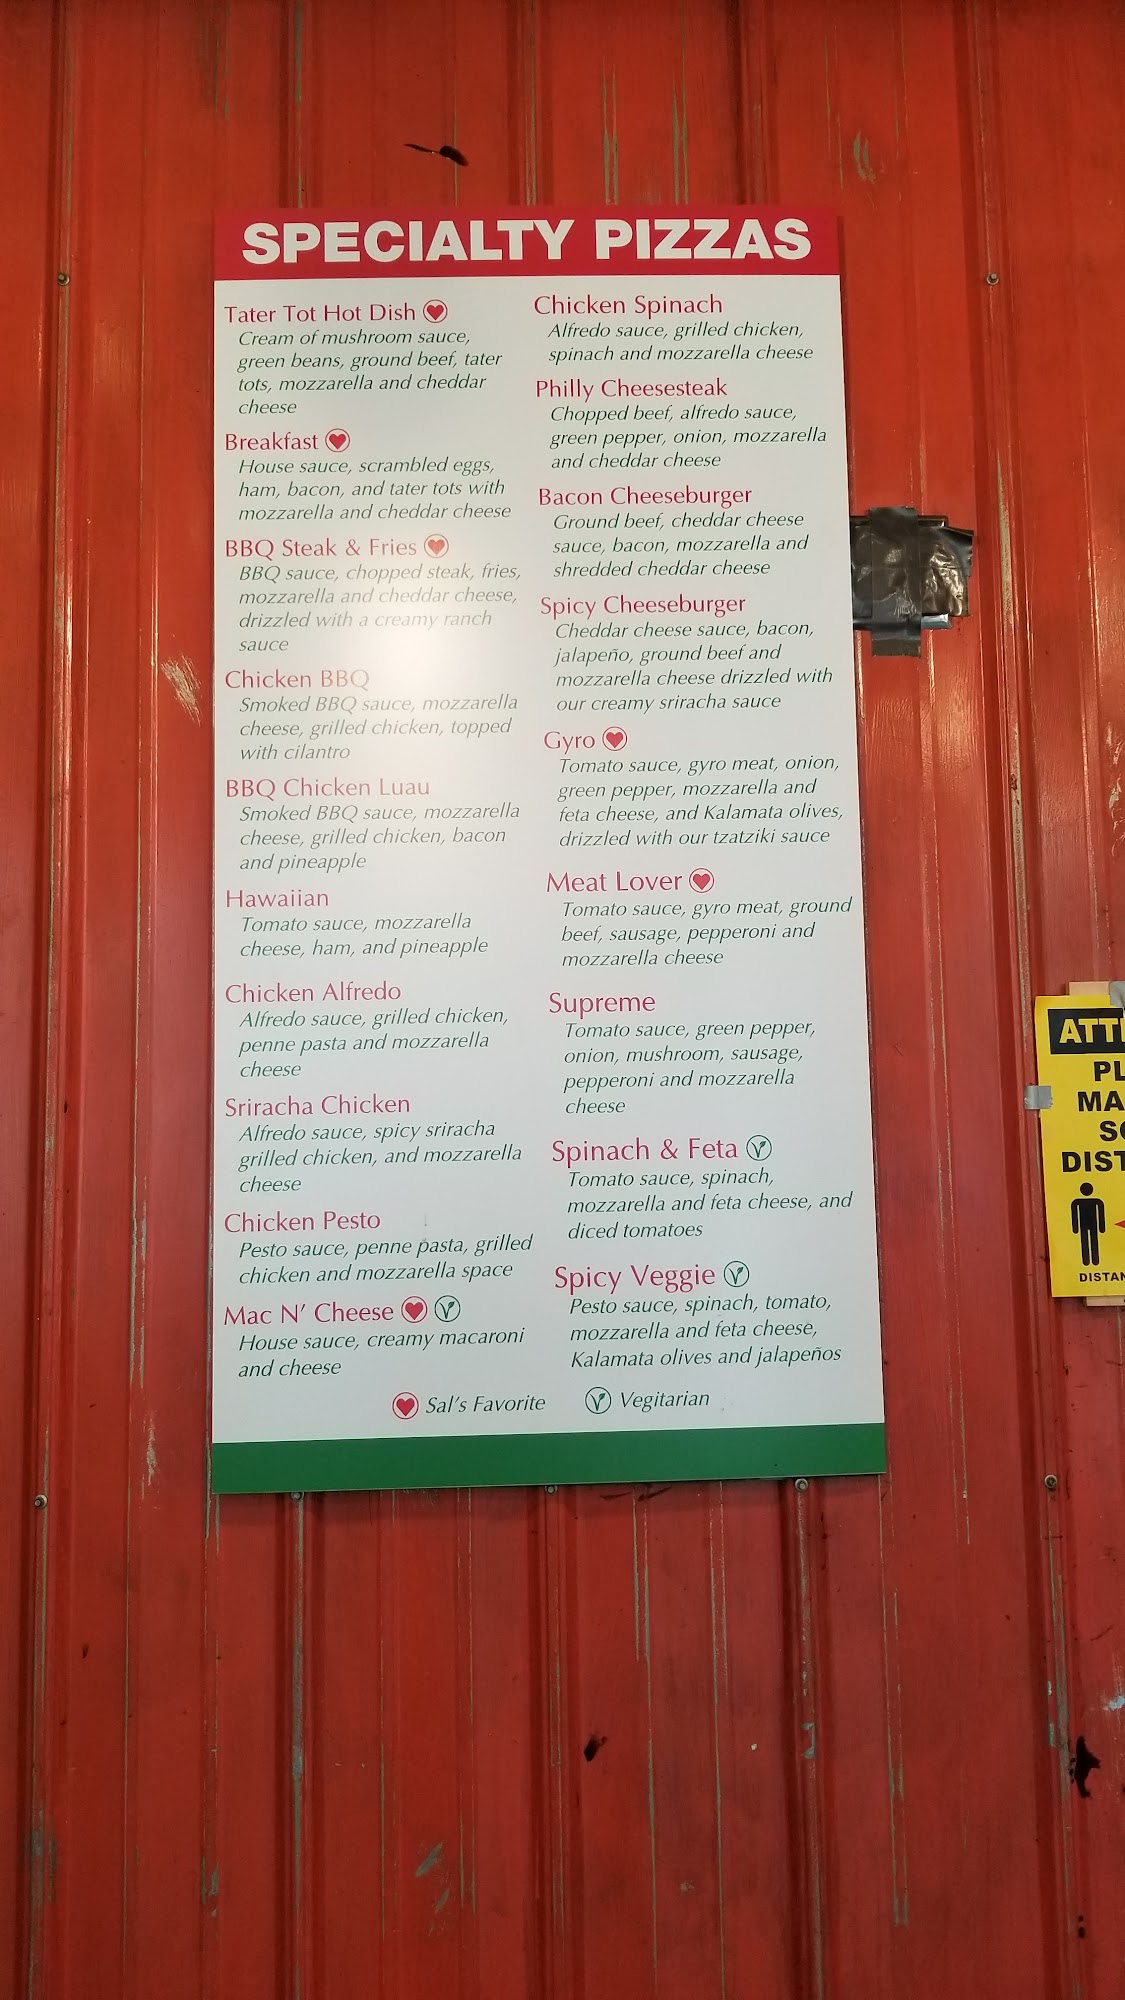 SPECIALTY PIZZAS
Tater Tot Hot Dish
Cream of mushroom sauce,
green beans, ground beef, tater
tots, mozzarella and cheddar
cheese
Breakfast
House sauce, scrambled eggs,
ham, bacon, and tater tots with
mozzarella and cheddar cheese
BBQ Steak & Fries
BBQ sauce, chopped steak, fries,
mozzarella and cheddar cheese,
drizzled with a creamy ranch
sauce
Chicken BBQ
Smoked BBQ sauce, mozzarella
cheese, grilled chicken, topped
with cilantro
BBQ Chicken Luau
Smoked BBQ sauce, mozzarella
cheese, grilled chicken, bacon
and pineapple
Hawaiian
Tomato sauce, mozzarella
cheese, ham, and pineapple
Chicken Alfredo
Alfredo sauce, grilled chicken,
penne pasta and mozzarella
cheese
Sriracha Chicken
Alfredo sauce, spicy sriracha
grilled chicken, and mozzarella
cheese
Chicken Pesto
Pesto sauce, penne pasta, grilled
chicken and mozzarella space
Mac N' Cheese
House sauce, creamy macaroni
and cheese
Chicken Spinach
Alfredo sauce, grilled chicken,
spinach and mozzarella cheese
Philly Cheesesteak
Chopped beef, alfredo sauce,
green pepper, onion, mozzarella
and cheddar cheese
Bacon Cheeseburger
Ground beef, cheddar cheese
sauce, bacon, mozzarella and
shredded cheddar cheese
Spicy Cheeseburger
Cheddar cheese sauce, bacon,
jalapeño, ground beef and
mozzarella cheese drizzled with
our creamy sriracha sauce
Gyro
Tomato sauce, gyro meat, onion,
green pepper, mozzarella and
feta cheese, and Kalamata olives,
drizzled with our tzatziki sauce
Meat Lover
Tomato sauce, gyro meat, ground
beef, sausage, pepperoni and
mozzarella cheese
Supreme
Tomato sauce, green pepper,
onion, mushroom, sausage,
pepperoni and mozzarella
cheese
Spinach & Feta
Tomato sauce, spinach,
mozzarella and feta cheese, and
diced tomatoes
Spicy Veggie
Pesto sauce, spinach, tomato,
mozzarella and feta cheese,
Kalamata olives and jalapeños
Sal's Favorite
Vegitarian
ATT
PL
MA
DIST
DISTAN